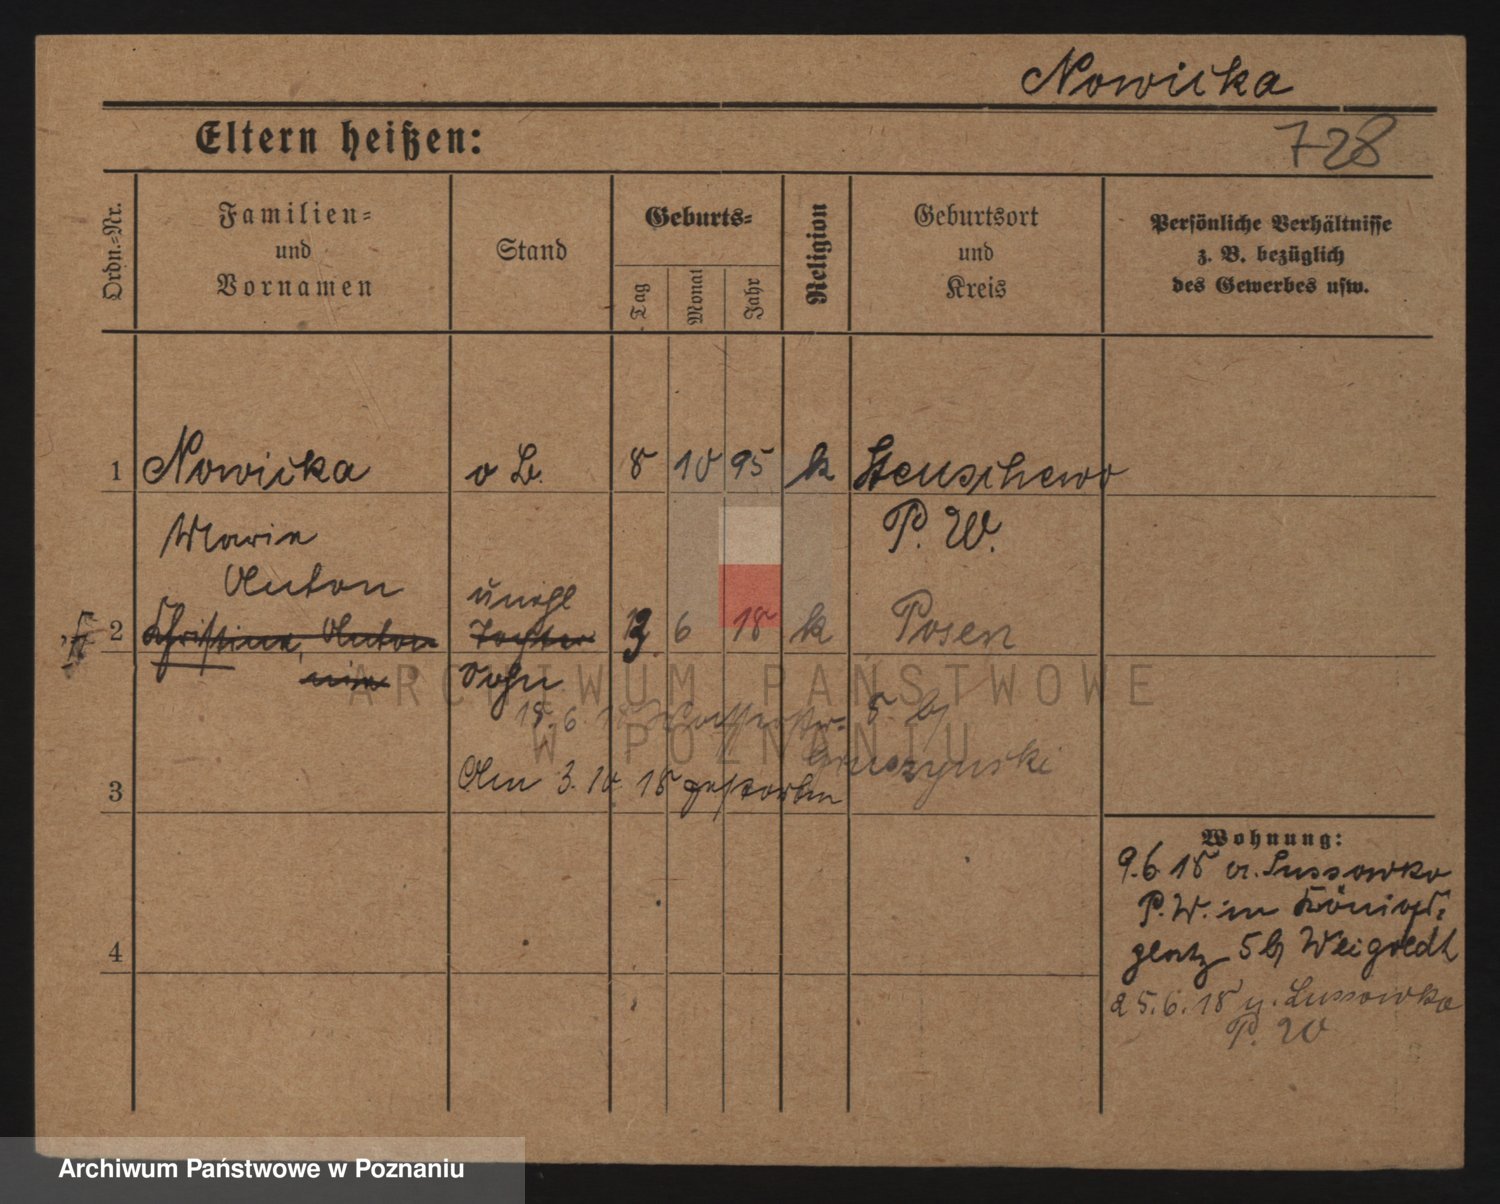 Nowicka
Eltern heißen:
728
Ordn.=Nr.
Familien=
und
Vornamen
Stand
Geburts=
Tag
Monat
Jahr
Religion
Geburtsort
und
Kreis
Persönliche Verhältnisse
z. B. bezüglich
des Gewerbes usw.
1 Nowicka o B. 8 10 95 k Stenschewo
Marie P. W.
Anton unehl
2 Christine, Anton Tochter 3. 6 18 k Posen
nie Sohn
18. 6. 5 b
Gruszynski
3 Am 3. 10 18 gestorben
4
Wohnung:
9.6 18 v. Lussowko
P. W. in Königs=
platz 5 b Weigoldt
25.6.18 n. Lussowko
P. W
ARCHIWUM PAŃSTWOWE
W POZNANIU
Archiwum Państwowe w Poznaniu